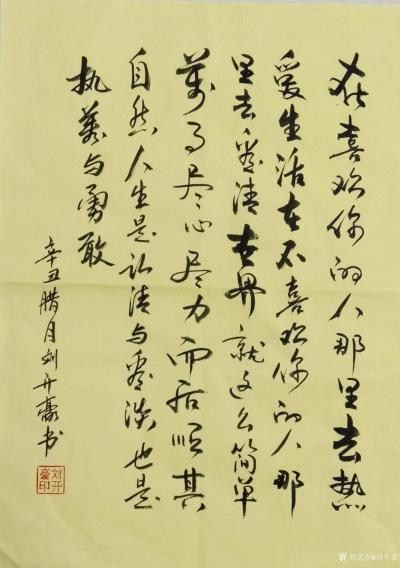 在喜欢你的人那里去热
爱生活在不喜欢你的人那
里去看清世界就这么简单
万事尽心尽力而后顺其
自然人生是认清与看淡也是
执着与勇敢
辛丑腊月刘开豪书
刘开豪印